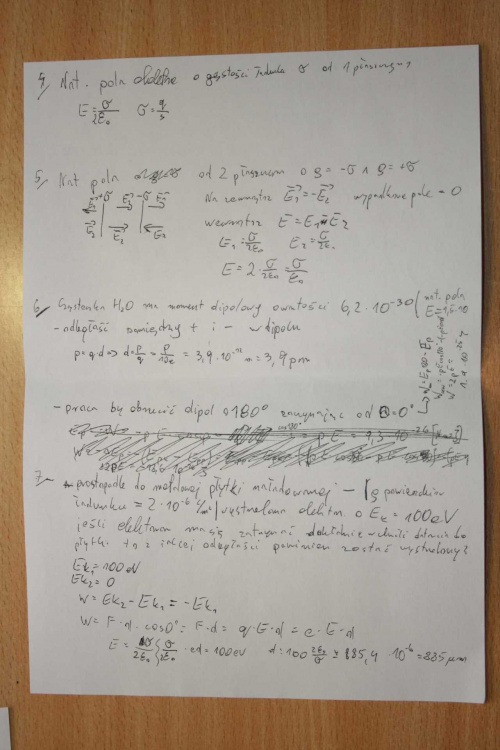 4, Nat. pola o gęstości ładunku σ od 1 płaszczyzny
E = σ/2ε₀ σ = q/s
5, Nat pola od 2 płaszczyzn o ς = -σ i ς = +σ
Na zewnątrz E₁ = -E₂ wypadkowe pole = 0
E₁ +σ E₂ -σ E₁
E₂ E₂ E₂
wewnątrz E = E₁ E₂
E₁ = σ/2ε₀ E₂ = σ/2ε₀
E = 2 · σ/2ε₀ = σ/ε₀
6, Cząstka H₂O ma moment dipolowy o wartości 6,2 · 10⁻³⁰ (nat. pola E = 1,5 · 10
- odległość pomiędzy + i - w dipolu
p = q·d => d = p/q = p/10e = 3,9 · 10⁻¹² m = 3,9 pm
- praca by obrócić dipol o 180° zaczynając od θ = 0°
7 - prostopadle do metalowej płytki naładowanej - (g. powierzchn.
ładunku = 2 · 10⁻⁶ C/m²) wystrzelono elektron. o Ek = 100 eV
jeśli elektron ma się zatrzymać dokładnie w chwili dotarcia do
płytki to z jakiej odległości powinien zostać wystrzelony?
Ek₁ = 100 eV
Ek₂ = 0
W = Ek₂ - Ek₁ = -Ek₁
W = F · d · cos0° = F·d = q·E·d = e·E·d
E = σ/2ε₀ { σ/2ε₀ · ed = 100 eV d = 100 2ε₀/σ ≈ 885,4 · 10⁻⁶ = 885 μm